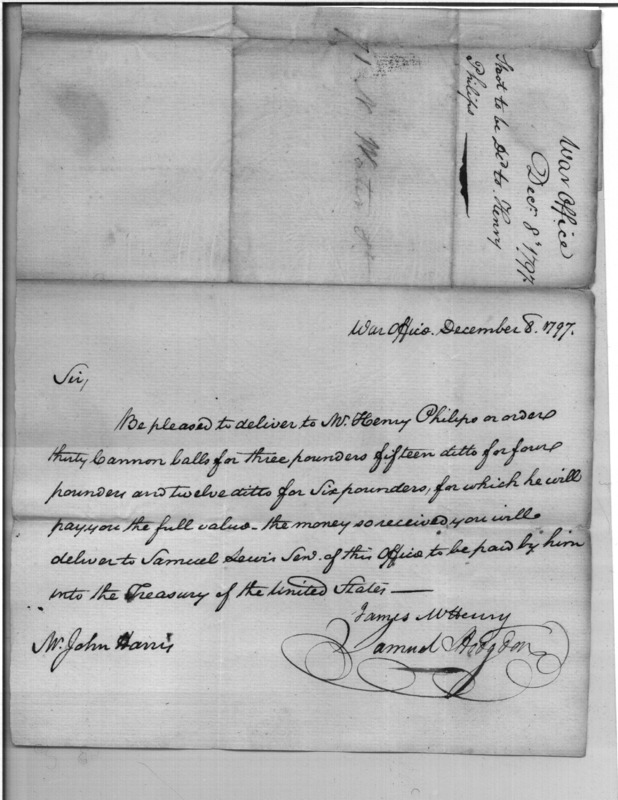 War Office
Decr. 8th 1797.
Shot to be Dd. to Henry
Philips
71 N Water St
War Office. December 8. 1797.
Sir,
Be pleased to deliver to Mr. Henry Philips or order
thirty Cannon balls for three pounders fifteen ditto for four
pounders and twelve ditto for Six pounders, for which he will
pay you the full value - the money so received you will
deliver to Samuel Lewis Senr. of this Office to be paid by him
into the Treasury of the United States —
James McHenry
Samuel Hodgdon
Mr. John Harris